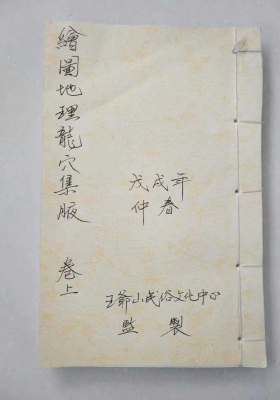 繪圖地理龍穴集腋 卷上
戊戌年
仲春
王爺山民俗文化中心
監製